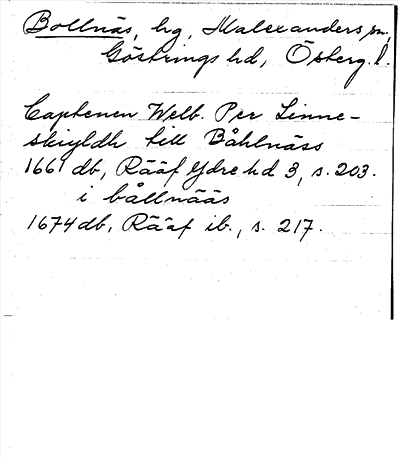 Bollnäs, hg, Malexanders sn,
Göstrings hd, Österg. l.
Captenen Welb. Per Linne-
skiyldh till Båhlnäss
1661 db, Rääf Ydre hd 3, s. 203.
i bållnääs
1674 db, Rääf ib., s. 217.